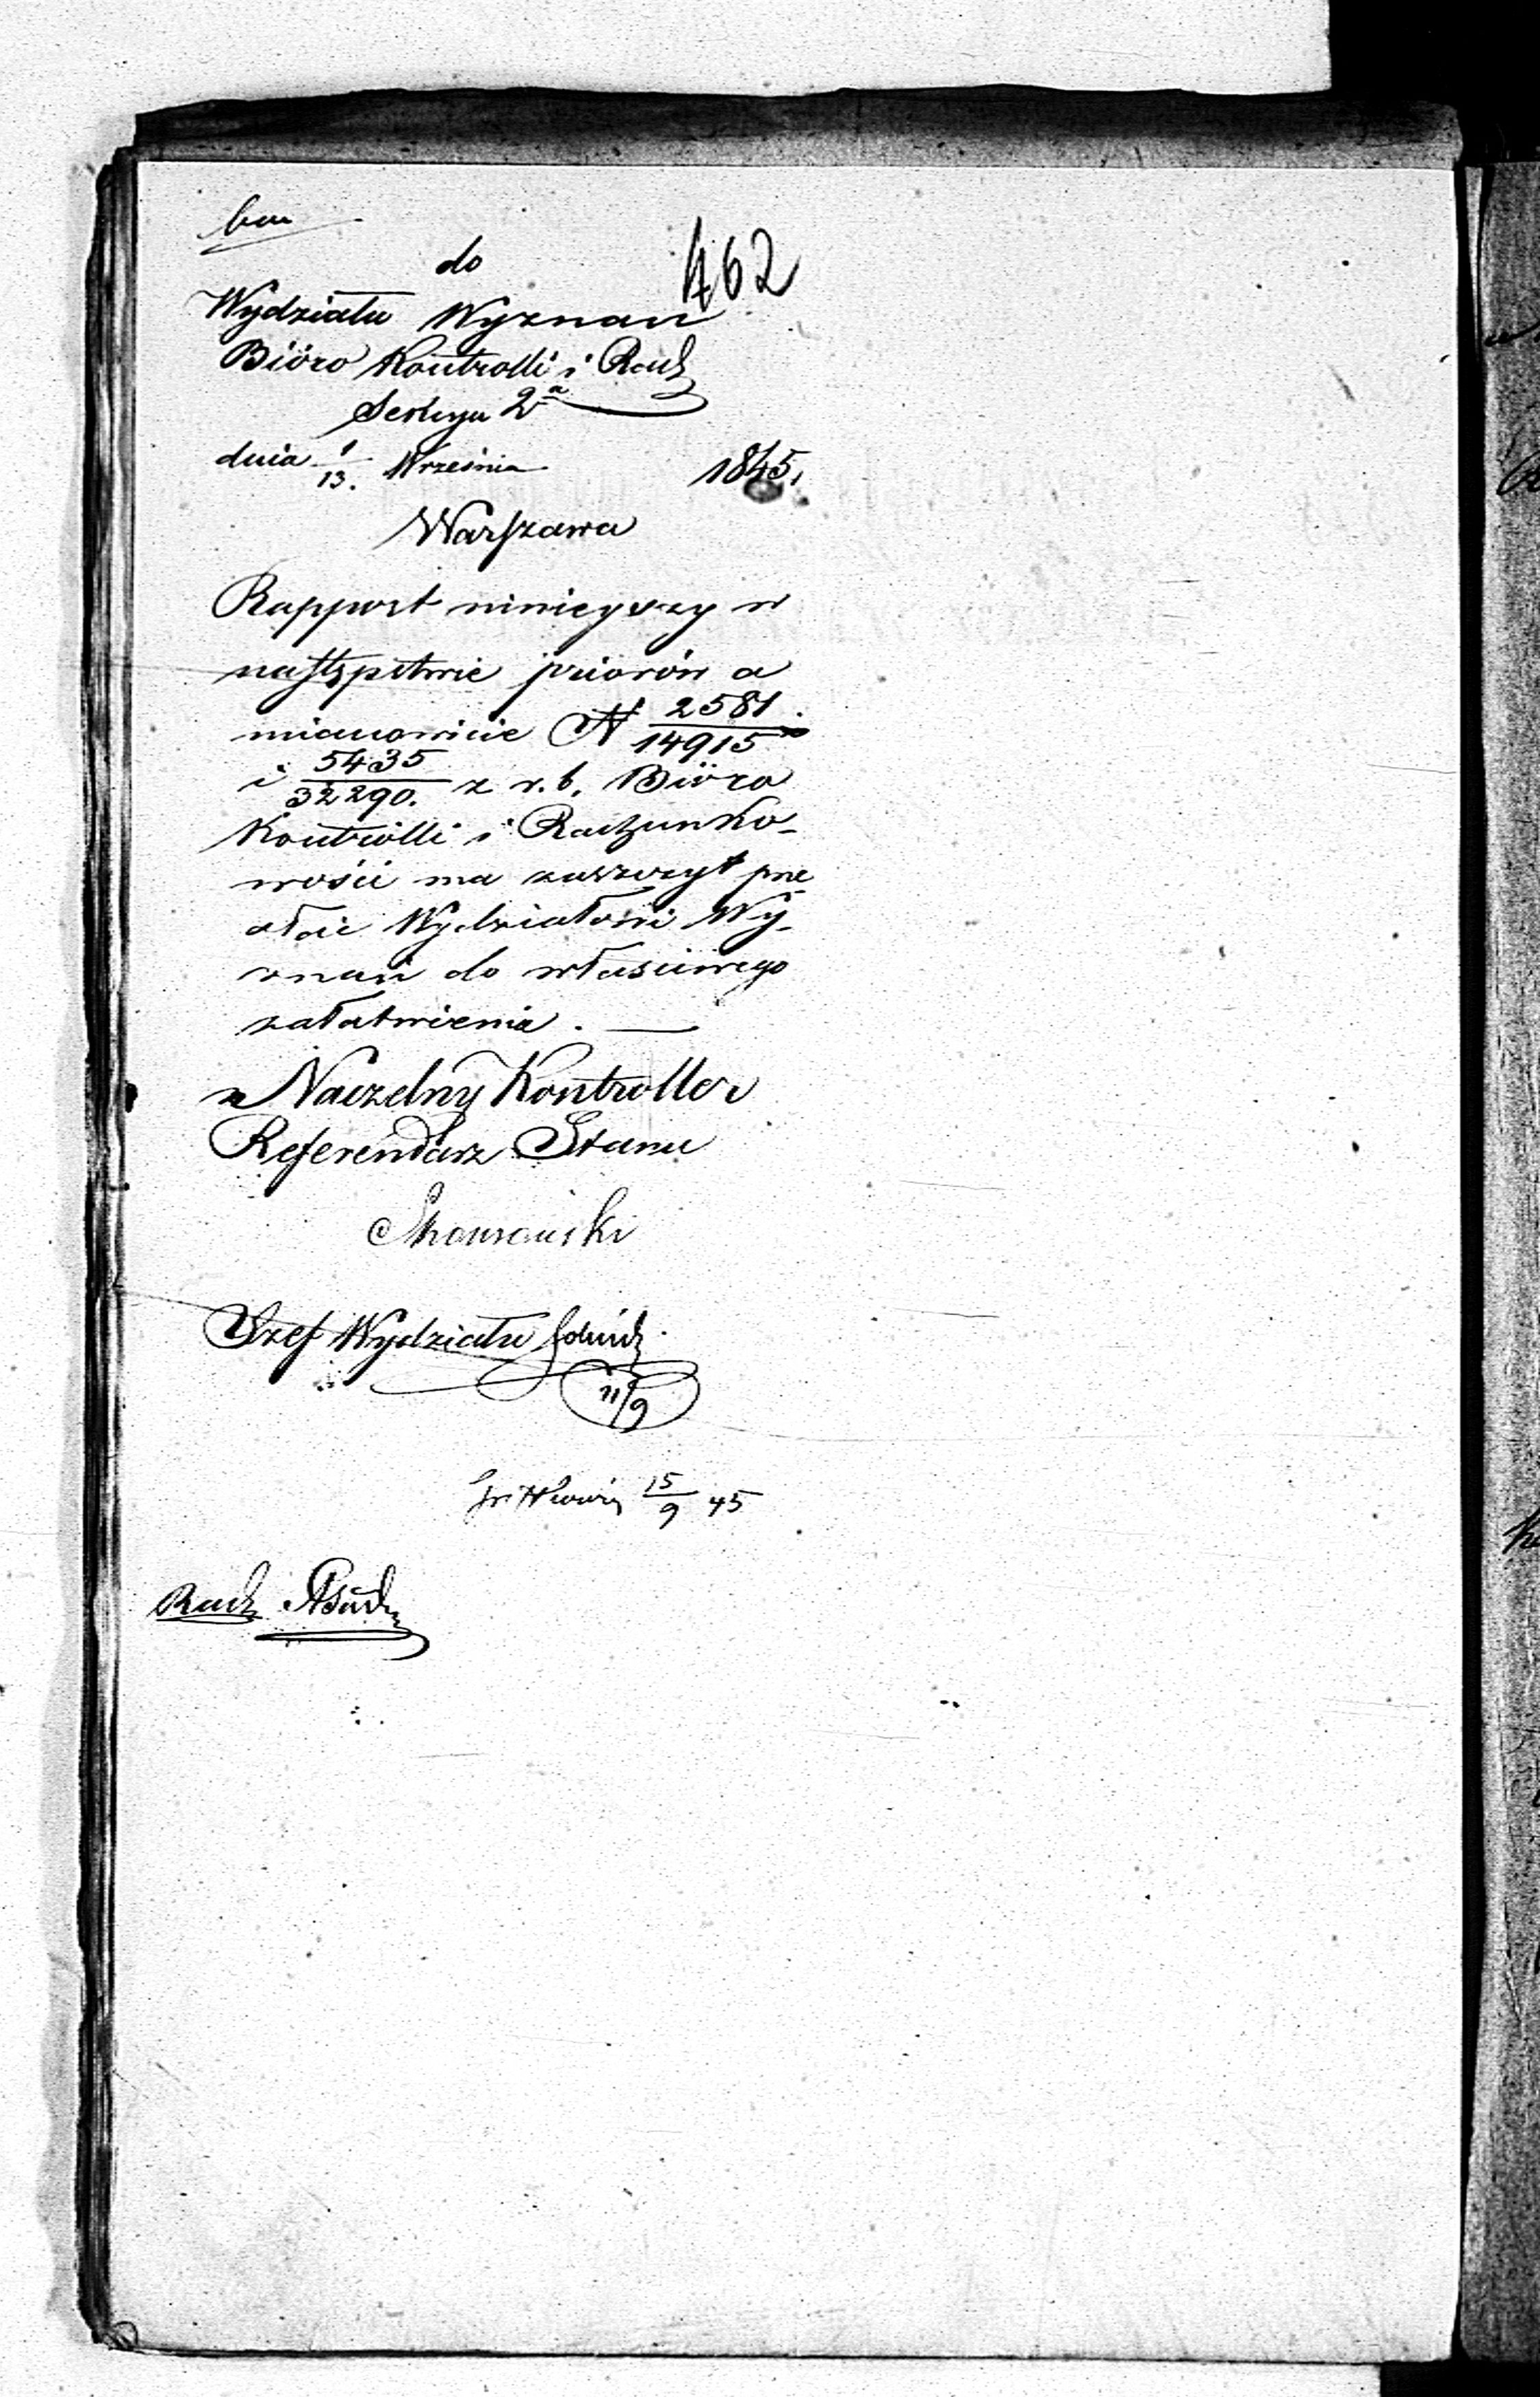 do
462
Wydziału Wyznań
Biöro Kontrolli i Rach
Sekcya 2a
dnia 1/13. Września 1845.
Warszawa
Rapport ninieyszy w
następstwie priorów a
mianowicie N 2581/14915
i 5435/32290. z r. b. Biöro
Kontrolli i Rachunko-
wości ma zaszczyt prze
słać Wydziałowi Wy-
znań do właściwego
załatwienia. —
z Naczelny Kontroller
Referendarz Stanu
Szef Wydziału
11/9
15/9 45
Radz